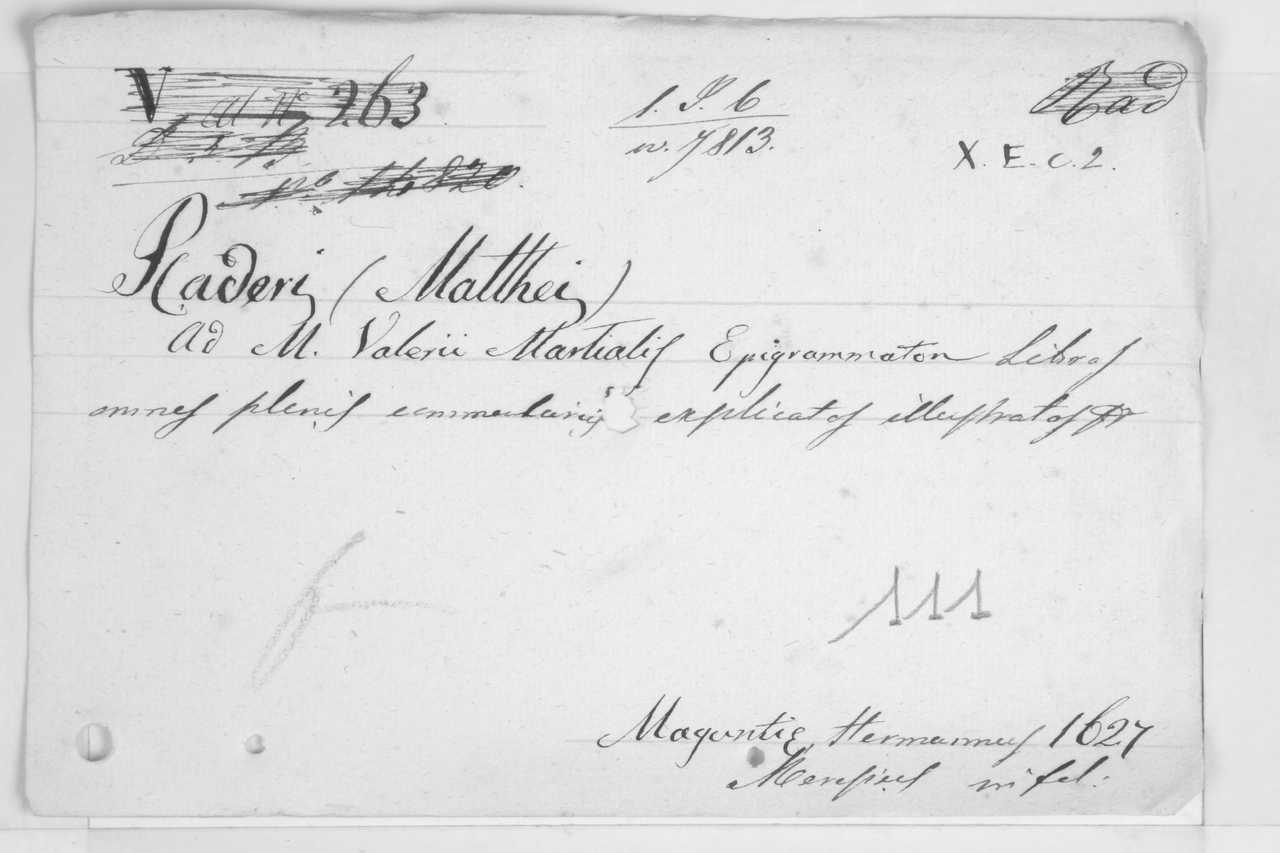 V 263
1. P. 6
n. 7813.
Rad
X. E. c. 2.
Raderi (Matthei)
Ad M. Valerii Martialis Epigrammaton Libros
omnes plenis commentariis explicatos illustratos
111
Maguntiæ Hermannus 1627
in fol: